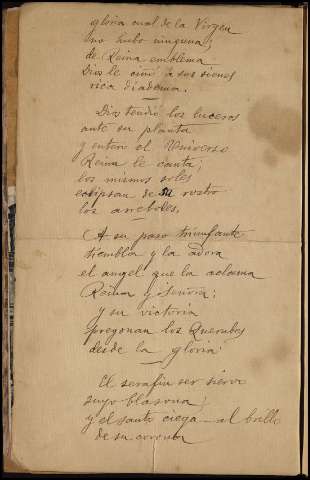 gloria cual de la Virgen
no hubo ninguna;
de Reina emblema
Dios le ciñó a sus sienes
rica diadema.
Dios tendió los luceros
ante su planta
y entero el Universo
Reina le canta;
los mismos soles
eclipsan de su rostro
los arreboles.
A su paso triunfante
tiembla y la adora
el angel que la aclama
Reina y Señora;
y su victoria
pregonan los Querubes
desde la gloria
El serafin ser siervo
suyo blasona;
y el santo ciega al brillo
de su corona